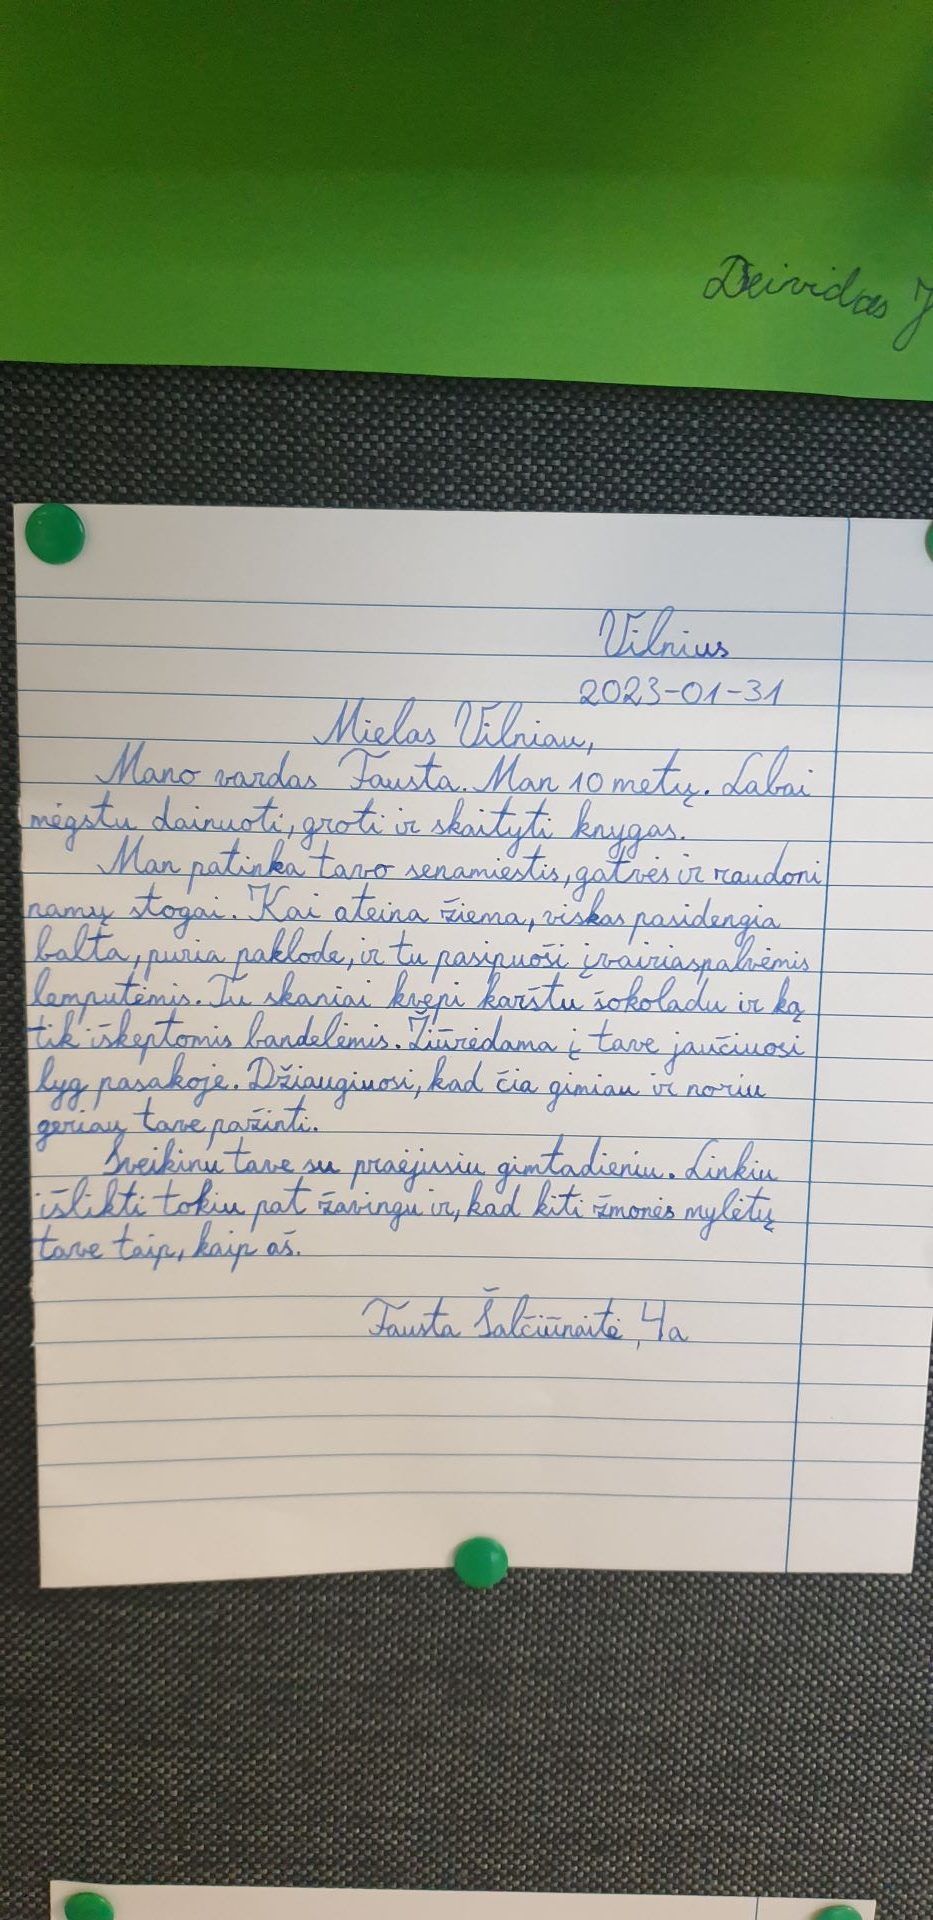 Deividas J
Vilnius
2023-01-31
Mielas Vilniau,
Mano vardas Fausta. Man 10 metų. Labai
mėgstu dainuoti, groti ir skaityti knygas.
Man patinka tavo senamiestis, gatvės ir raudoni
namų stogai. Kai ateina žiema, viskas pasidengia
balta, puria paklode, ir tu pasipuoši įvairiaspalvėmis
lemputėmis. Tu skaniai kvepi karštu šokoladu ir ką
tik iškeptomis bandelėmis. Žiūrėdama į tave jaučiuosi
lyg pasakoje. Džiaugiuosi, kad čia gimiau ir noriu
geriau tave pažinti.
Sveikinu tave su praėjusiu gimtadieniu. Linkiu
išlikti tokiu pat žavingu ir, kad kiti žmonės mylėtų
tave taip, kaip aš.
Fausta Šalčiūnaitė, 4a